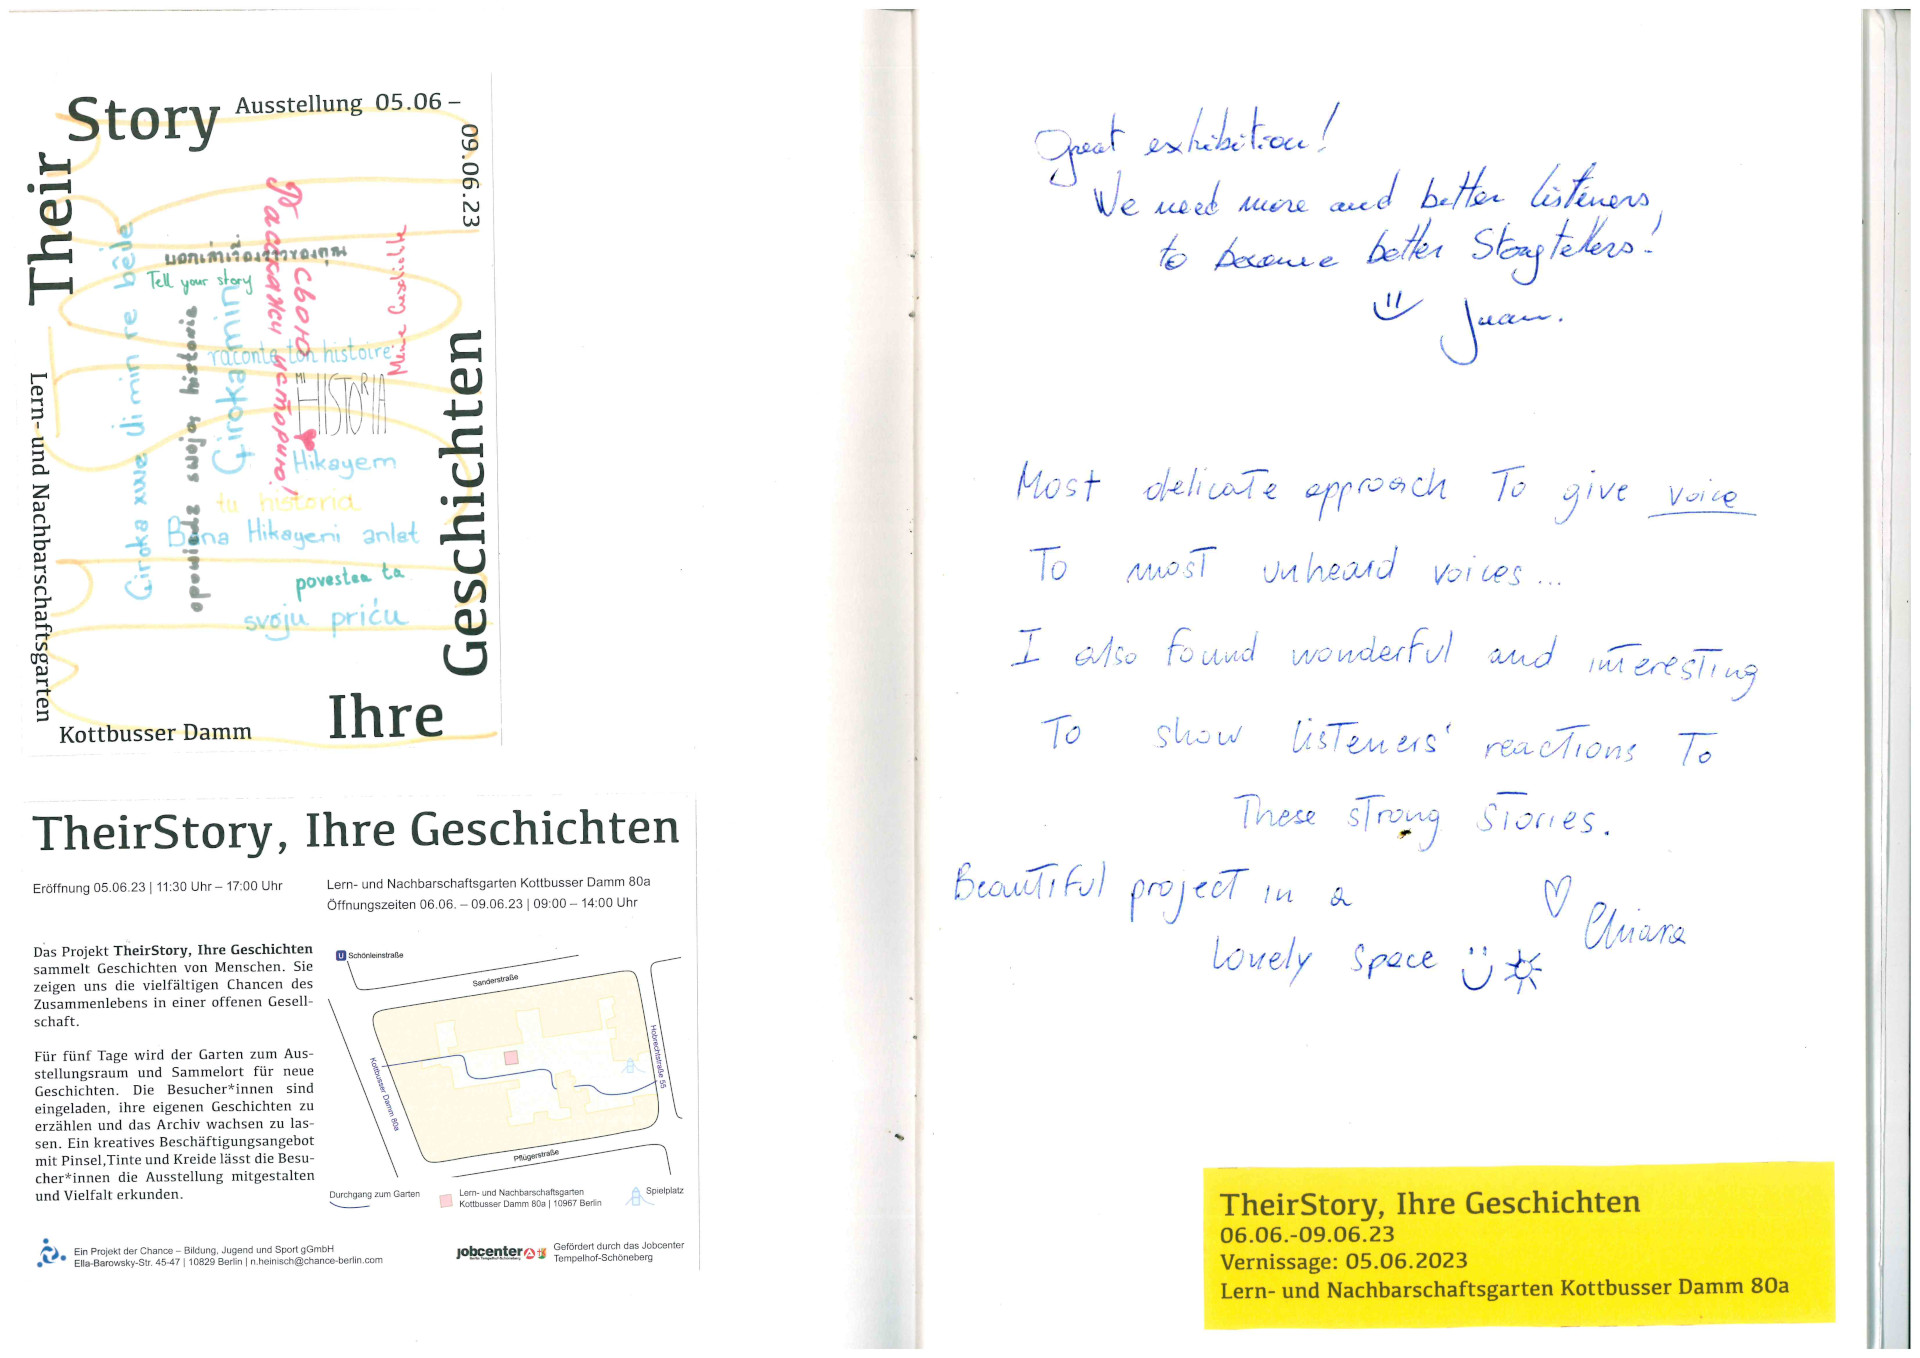 Their
Story
Ausstellung 05.06 –
09.06.23
Geschichten
Ihre
Kottbusser Damm
Lern- und Nachbarschaftsgarten
Çiroka xwe di min re bêje
opowiedz swoją historie
Çiroka min
Расскажи
свою
историю!
Meine Geschichte
บอกเล่าเรื่องราวของคุณ
Tell your story
raconte ton histoire
MI
HISTORIA
Hikayem
tu historia
Bana Hikayeni anlat
povestea ta
svoju priču
TheirStory, Ihre Geschichten
Eröffnung 05.06.23 | 11:30 Uhr – 17:00 Uhr
Lern- und Nachbarschaftsgarten Kottbusser Damm 80a
Öffnungszeiten 06.06. – 09.06.23 | 09:00 – 14:00 Uhr
Das Projekt TheirStory, Ihre Geschichten
sammelt Geschichten von Menschen. Sie
zeigen uns die vielfältigen Chancen des
Zusammenlebens in einer offenen Gesell-
schaft.
Für fünf Tage wird der Garten zum Aus-
stellungsraum und Sammelort für neue
Geschichten. Die Besucher*innen sind
eingeladen, ihre eigenen Geschichten zu
erzählen und das Archiv wachsen zu las-
sen. Ein kreatives Beschäftigungsangebot
mit Pinsel,Tinte und Kreide lässt die Besu-
cher*innen die Ausstellung mitgestalten
und Vielfalt erkunden.
U Schönleinstraße
Sanderstraße
Hobrechtstraße 55
Kottbusser Damm 80a
Pflügerstraße
Durchgang zum Garten
Lern- und Nachbarschaftsgarten
Kottbusser Damm 80a | 10967 Berlin
Spielplatz
Ein Projekt der Chance – Bildung, Jugend und Sport gGmbH
Ella-Barowsky-Str. 45-47 | 10829 Berlin | n.heinisch@chance-berlin.com
jobcenter
Berlin Tempelhof-Schöneberg
Gefördert durch das Jobcenter
Tempelhof-Schöneberg
Great exhibition!
We need more and better listeners,
to become better Storytellers!
Juan.
Most delicate approach To give voice
To most unheard voices...
I also found wonderful and interesting
To show listeners' reactions To
These strong stories.
Beautiful project in a
lovely space
Chiara
TheirStory, Ihre Geschichten
06.06.-09.06.23
Vernissage: 05.06.2023
Lern- und Nachbarschaftsgarten Kottbusser Damm 80a